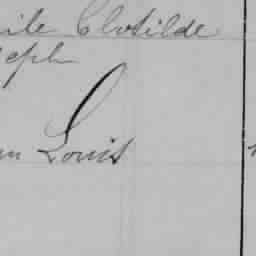 ile Clotilde
eph
n Louis